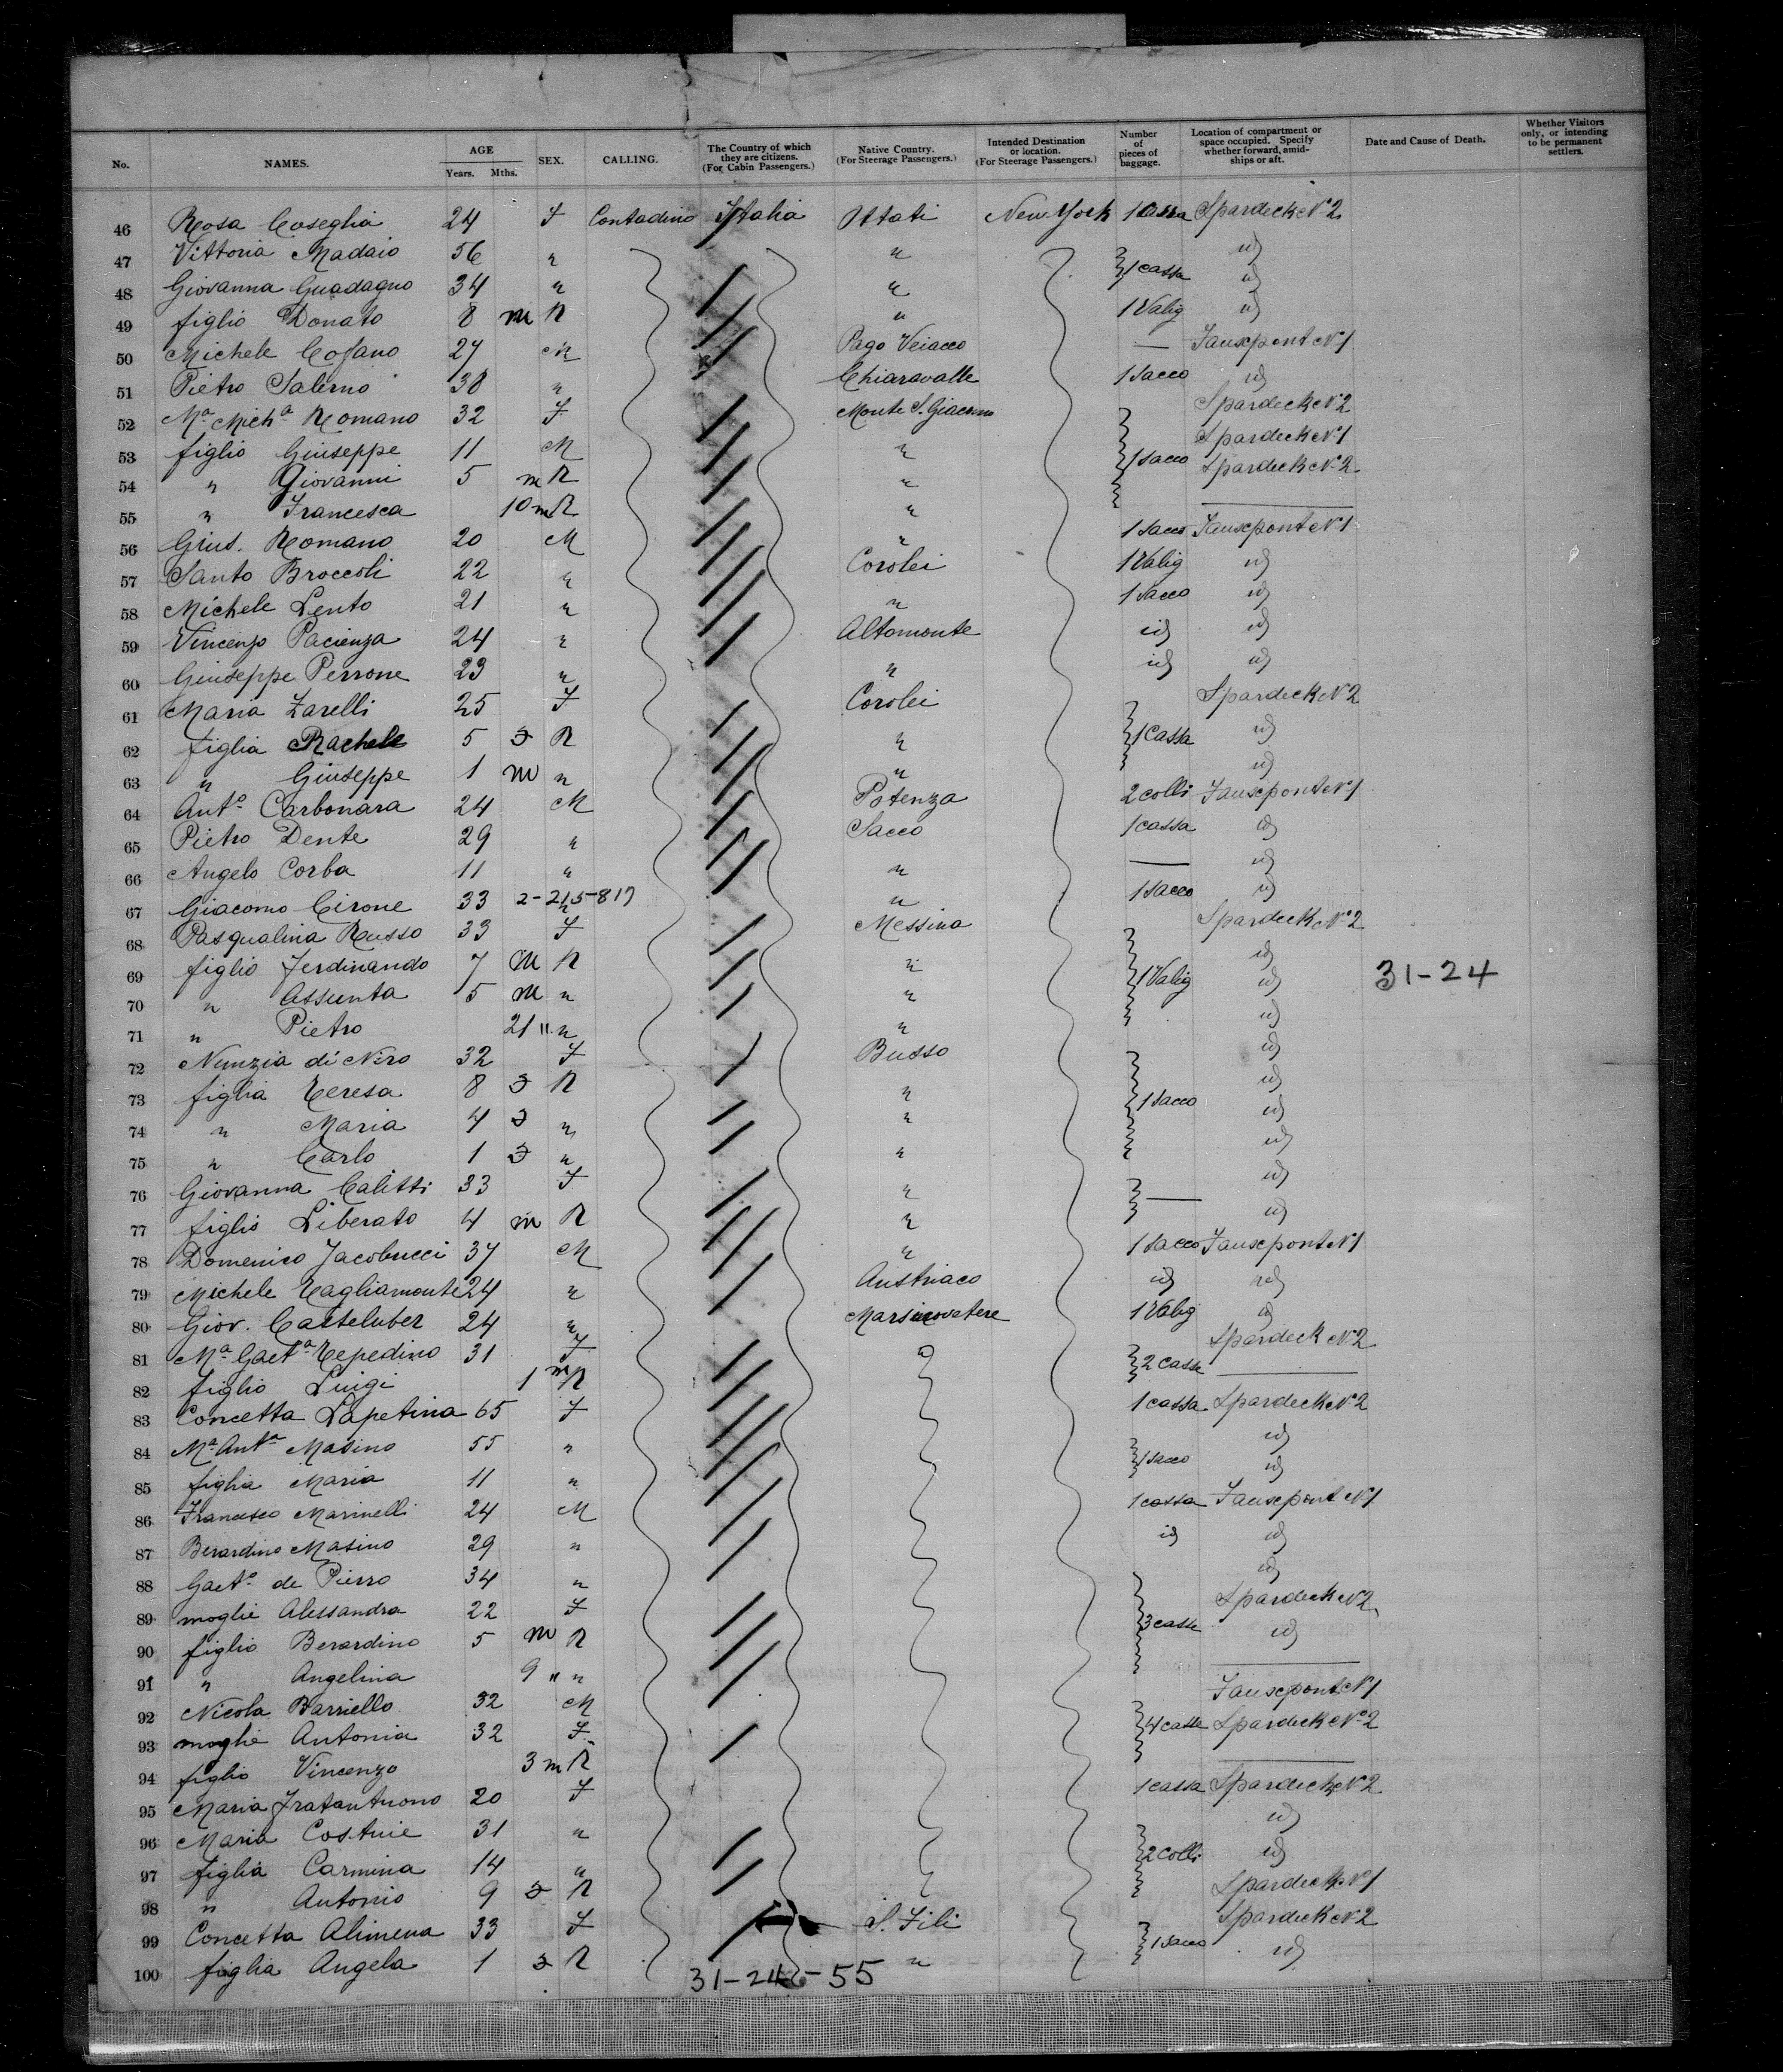 No. NAMES. AGE Years. Mths. SEX. CALLING. The Country of which they are citizens. (For Cabin Passengers.) Native Country. (For Steerage Passengers.) Intended Destination or location. (For Steerage Passengers.) Number of pieces of baggage. Location of compartment or space occupied. Specify whether forward, amidships or aft. Date and Cause of Death. Whether Visitors only, or intending to be permanent settlers.
46 Rosa Coseglia 24 F Contadino Italia Ottati New York 1 Cassa Spardeck N°2
47 Vittoria Madaio 56 " " 1 cassa id
48 Giovanna Guadagno 34 " " id
49 figlio Donato 8 m R " 1 Valig id
50 Michele Cofano 27 M Pago Veiacco — Fauxpont N°1
51 Pietro Salerno 38 " Chiaravalle 1 Sacco id
52 Mª Michª Romano 32 F Monte S. Giacomo Spardeck N°2
53 figlio Giuseppe 11 M " 1 Sacco Spardeck N°1
54 " Giovanni 5 m R " Spardeck N°2
55 " Francesca 10 m R "
56 Gius. Romano 20 M " 1 Sacco Fauxpont N°1
57 Santo Broccoli 22 " Corolei 1 Valig id
58 Michele Lento 21 " " 1 Sacco id
59 Vincenzo Pacienza 24 " Altomonte id id
60 Giuseppe Perrone 23 " " id id
61 Maria Zarelli 25 F Corolei Spardeck N°2
62 figlia Rachele 5 R " 1 Cassa id
63 " Giuseppe 1 m " " id
64 Antº Carbonara 24 M Potenza 2 colli Fauxpont N°1
65 Pietro Dente 29 " Sacco 1 cassa id
66 Angelo Corba 11 " " — id
67 Giacomo Cirone 33 2-215-817 " " 1 Sacco id
68 Pasqualina Russo 33 F Messina Spardeck N°2
69 figlio Ferdinando 7 m R " 1 Valig id 31-24
70 " Assunta 5 m " " id
71 " Pietro 21 " " " id
72 Nunzia di Niro 32 F Busso id
73 figlia Teresa 8 R " 1 Sacco id
74 " Maria 4 " " id
75 " Carlo 1 " " id
76 Giovanna Calitti 33 F " — id
77 figlio Liberato 4 m R " id
78 Domenico Jacobucci 37 M " 1 Sacco Fauxpont N°1
79 Michele Tagliamonte 24 " Austriaco id id
80 Giov. Casteluber 24 " Marsicovetere 1 Valig id
81 Mª Gaetª Tepedino 31 F 2 casse Spardeck N°2
82 figlio Luigi 1 m R
83 Concetta Lapetina 65 F 1 cassa Spardeck N°2
84 Mª Antª Masino 55 " 1 Sacco id
85 figlia Maria 11 " id
86 Francesco Marinelli 24 M 1 cassa Fauxpont N°1
87 Berardino Masino 29 " id id
88 Gaetº de Pierro 34 " id
89 moglie Alessandra 22 F 3 casse Spardeck N°2
90 figlio Berardino 5 m R id
91 " Angelina 9 " "
92 Nicola Barriello 32 M Fauxpont N°1
93 moglie Antonia 32 F 4 casse Spardeck N°2
94 figlio Vincenzo 3 m R
95 Maria Fratantuono 20 F 1 cassa Spardeck N°2
96 Maria 31 " 2 colli id
97 figlia Carmina 14 " id
98 " Antonio 9 R Spardeck N°1
99 Concetta Alimena 33 F S. Fili 1 Sacco Spardeck N°2
100 figlia Angela 1 R " id
31-24-55